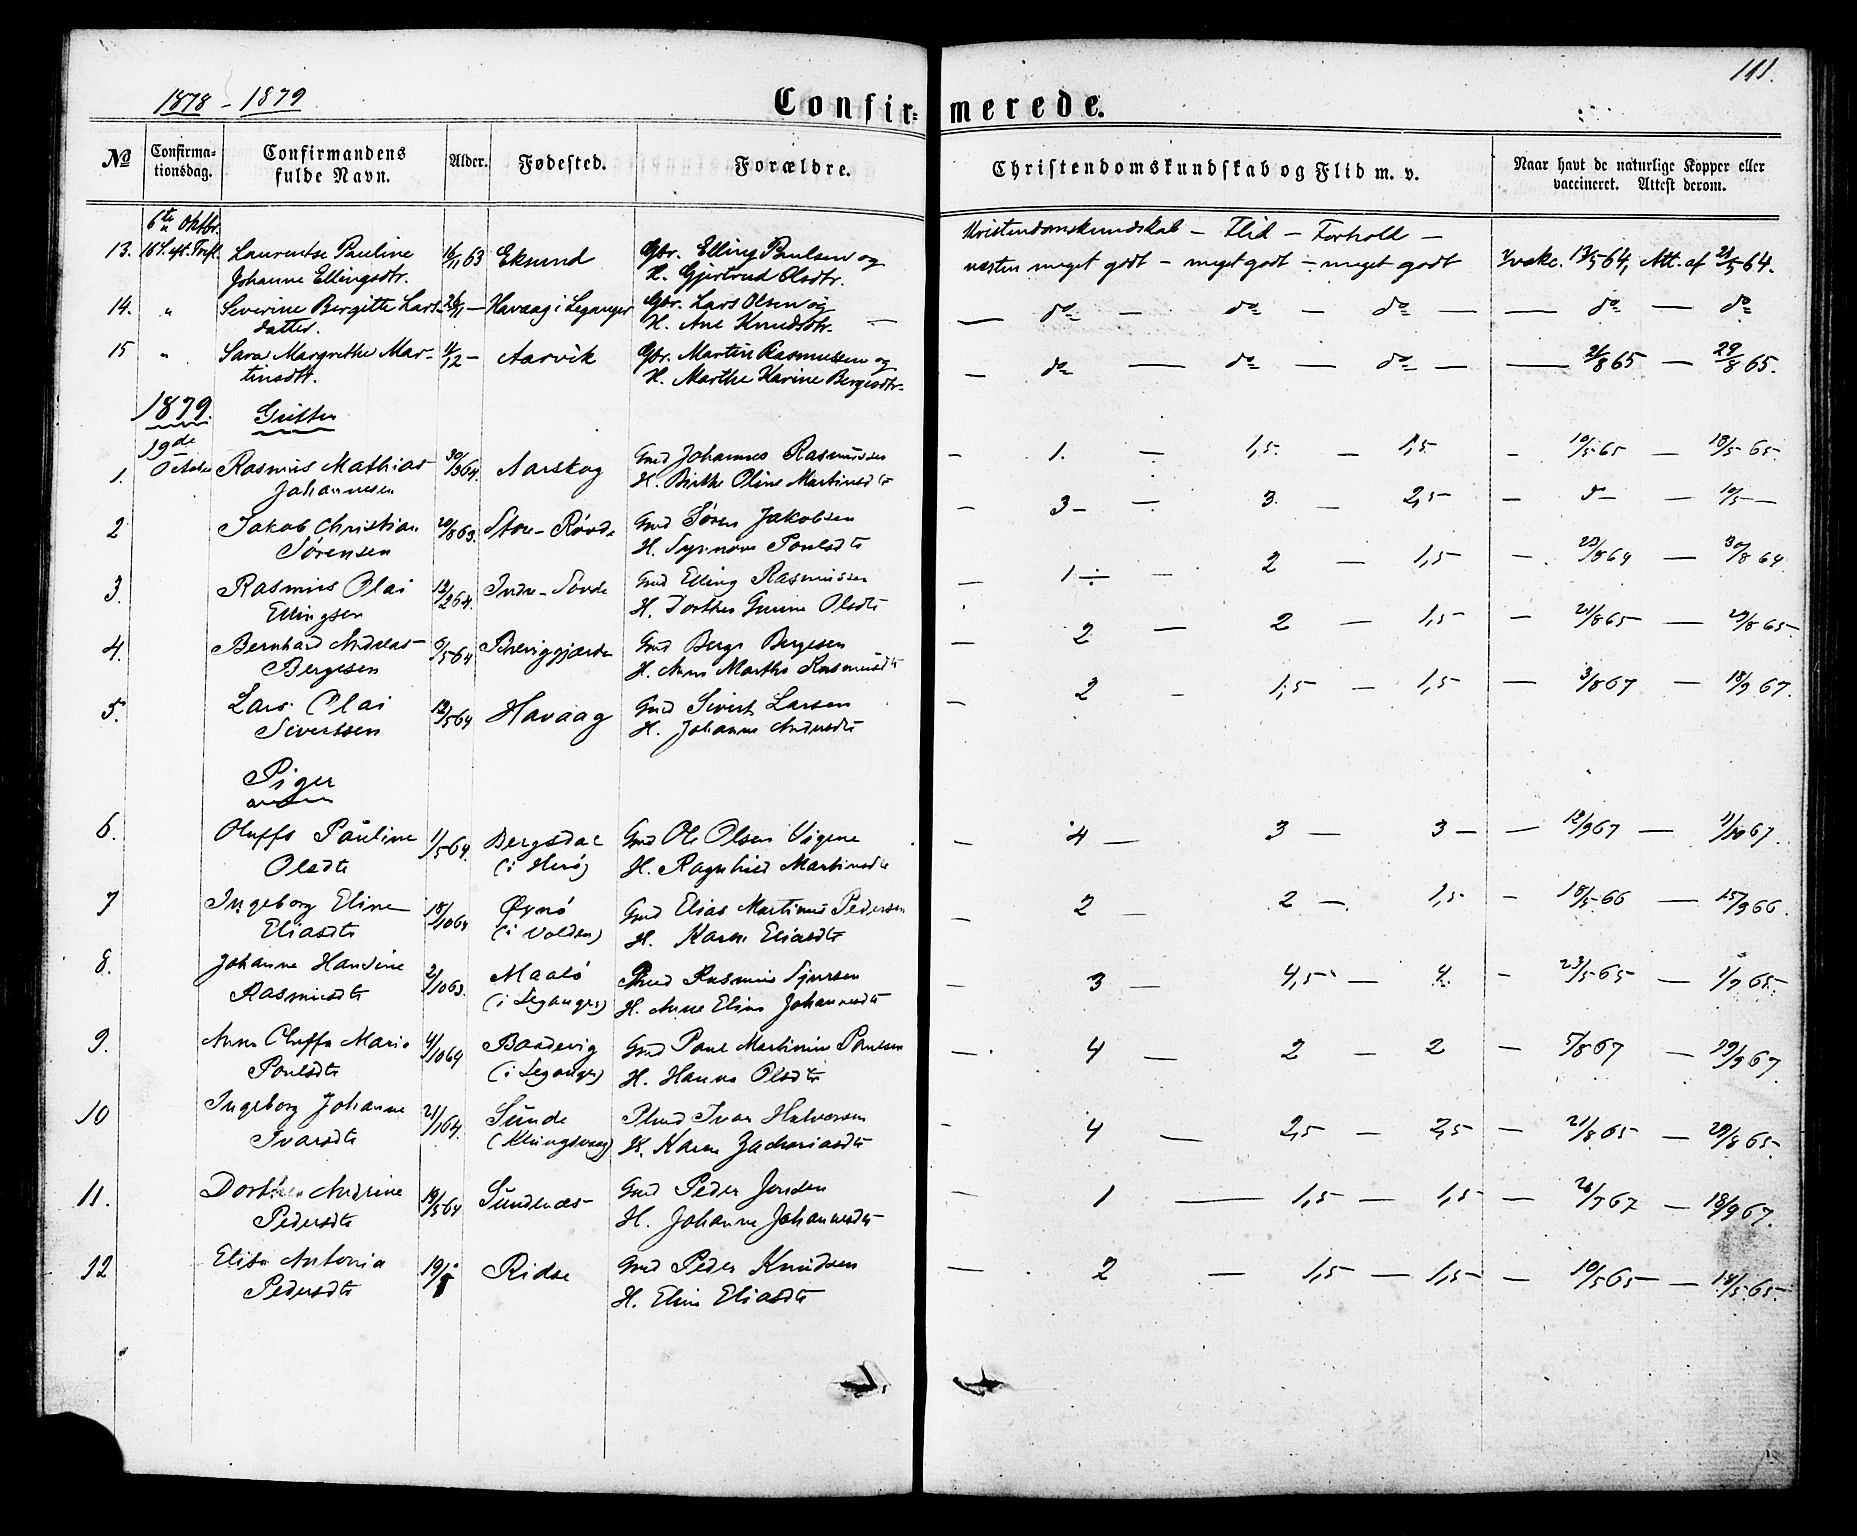 1878 - 1879
111.
Confir= merede.
No
Confirma-
tionsdag.
Confirmandens
fulde Navn.
Alder.
Fødested.
Forældre.
Christendomskundskab og Flid m. v.
Naar havt de naturlige Kopper eller
vaccineret. Attest derom.
6te Oktbr.
Kristendomskundskab - Flid - Forhold -
13. 16 S. eft. Trefl. Laurentse Pauline 16/11 63 Eksund Gbr. Elling Paulsen og næsten meget godt - meget godt - meget godt Ivske. 13/5 64, Att. af 21/5 64.
Johanne Ellingsdtr. H. Gjertrud Olsdtr.
14. " Severine Bergitte Lars- 26/11 - Havaag i Leganger Gbr. Lars Olsen og
datter. H. Ane Knudsdtr. - do - do - do - - do - do
15 " Sara Margrethe Mar- 11/2 - Aarvik Gbr. Martin Rasmussen og - do - do - do - - 21/8 65 - 29/8 65.
tinsdtr. H. Marthe Karine Bergesdtr.
1879. Gutter
19de
1. October Rasmus Mathias 30/3 64. Aarskog Gmd Johannes Rasmussen - 1. - 1,5. - 1,5. - 10/5 65 - 18/5 65.
Johannesen H. Birthe Oline Martinsdtr
2 Jakob Christian 20/8 63. Store-Røvde Gmd Søren Jakobsen - 3 - 3. - 2,5 - do - 10/5 -
Sørensen H. Synnøve Poulsdtr
3. Rasmus Olai 12/2 64. Indre-Sovde Gmd Elling Rasmussen - 1 ÷ - 2 - 1,5 - 23/8 64 - 30/8 64.
Ellingsen H. Dorthea Gurine Olsdtr
4. Bernhard Andreas 6/5 64 Breviggjærde Gmd Berge Bergesen - 2 - 2 - 1,5 - 21/8 65 - 29/8 65.
Bergesen H. Anne Marthe Rasmusdtr
5. Lars Olai 12/5 64 Havaag Gmd Sivert Larsen - 2 - 1,5 - 1,5 - 3/8 67 - 18/9 67.
Sivertsen H. Johanne Andersdtr
Piger
6. Oluffa Pauline 1/5 64. Bergsdal Gmd Ole Olsen Vigene - 4 - 3 - 3 - - 12/9 67 - 67.
Olsdtr (i Herø) H. Ragnhild Martinsdtr
7 Ingeborg Eline 18/10 64 Øynø Gmd Elias Martinus Pedersen - 2 - 2 - 1,5 - 18/5 66 - 15/9 66.
Eliasdtr (i Volden) H. Karen Eliasdtr
8. Johanne Hansine 2/10 63. Maalø Rasmus Sjursen - 3 - 4,5 - 4. - 23/5 65 - 1/9 65.
Rasmusdtr (i Leganger) H. Anne Eline Johannesdtr
9. Anne Oluffa Marie 4/10 64 Baadevig Gmd Paul Martinius Paulsen - 4 - 2 - 2 - 5/8 67 - 29/9 67.
Poulsdtr (i Leganger) H. Hanna Olsdtr
10 Ingeborg Johanne 21/1 64. Sunde Plmd Ivar Halvorsen - 4 - 2,5 - 2,5 - 21/8 65 - 29/8 65.
Ivarsdtr H. Karen Zachariasdtr
11. Dorthea Andrine 19/5 64 Sundenæs Gmd Peder Jensen - 1 - 1,5 - 1,5 - 26/7 67 - 18/9 67.
Pedersdtr H. Johanne Johannesdtr
12 Elise Antonia 19/8 Ridse Gmd Peder Knudsen - 2 - 1,5 - 1,5 - 10/5 65 - 18/5 65.
Pedersdtr H. Eline Eliasdtr